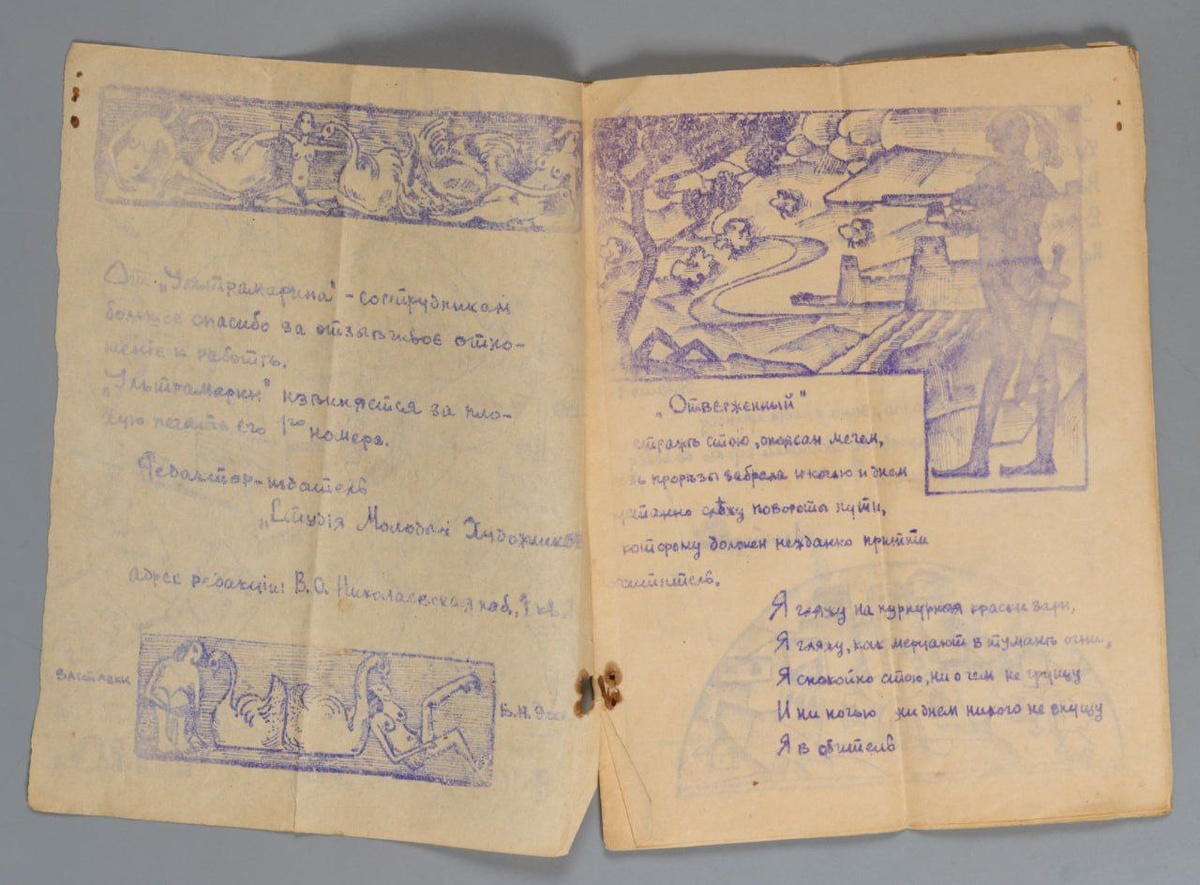 От „Ультрамарина" - сотрудникам
большое спасибо за отзывчивое отно-
шенiе к работѣ.
„Ультрамарин" извиняется за пло-
хую печать его 1го номера.
Редактор-издатель
„Студiя Молодых Художников
адрес редакцiи: В.О. Николаевская наб.,
заставки
В.Н.
„Отверженный"
стражъ стою, опоясан мечем,
прорѣзы забрала и ночью и днем
слѣжу повороты пути,
которому должен нежданно притти
Я гляжу на пурпурная краски зари,
Я гляжу, как мерцают в туманѣ огни,
Я спокойно стою, ни о чем не грущу
И ни ночью ни днем никого не впущу
Я в обитель